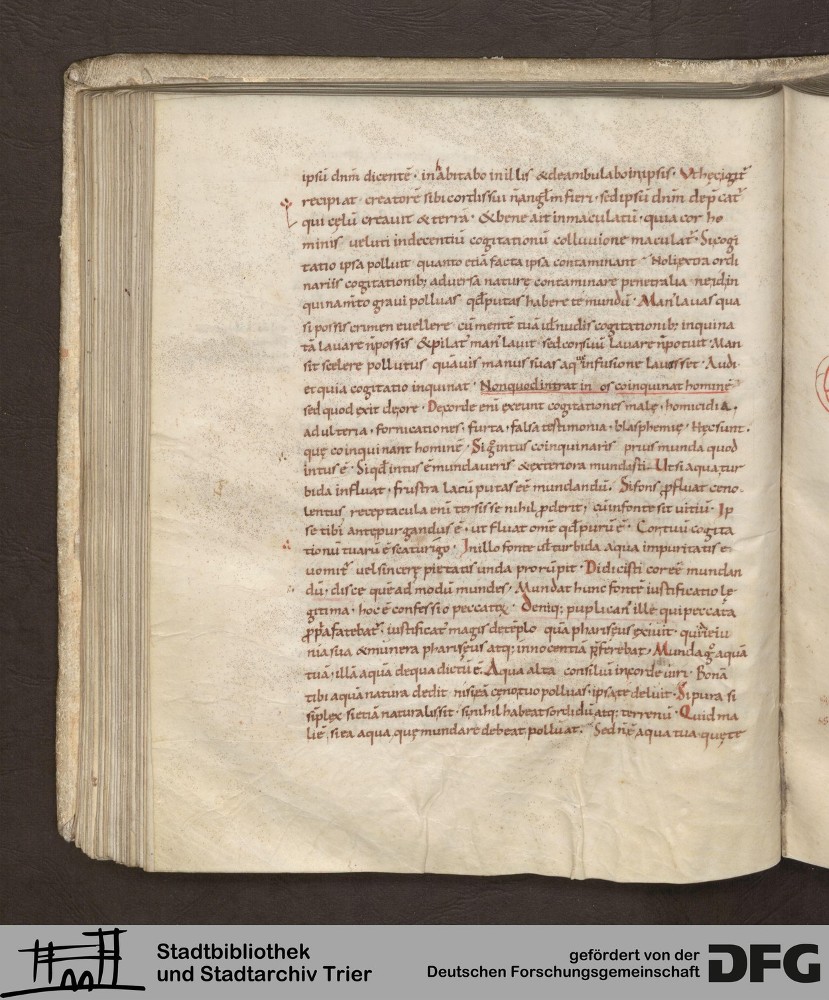 ipsū dnm̄ dicentē · inhabitabo in illis & deambulabo in ipsis · Vt hęc igit̄
recipiat · creatorē sibi cordis sui n̄ angl̄m fieri · sed ipsū dnm̄ dep̄cat̄
qui cęlū creauit & terrā · & bene ait inmaculatū · quia cor ho
minis veluti indecentiū cogitationū colluuione maculat̄ · Si cogi
tatio ipsa polluit quanto etiā facta ipsa contaminant · Noli extra ordi
nariis cogitationib; aduersa naturę contaminare penetralia · ne id in
quinam̄to graui polluas qd̄ putas habere te mundū · Man' lauas qua
si possis crimen euellere · cū mentē tuā ul̄ nudis cogitationib; inquina
tā lauare n̄ possis & pilat' man' lauit · sed consciū lauare n̄ potuit · Man
sit scelere pollutus quāuis manus suas aquę infusione lauisset · Audi
et quia cogitatio inquinat · Non quod intrat in os coinquinat hominē
sed quod exit de ore · De corde eni exeunt cogitationes malę · homicidia ·
adulteria · fornicationes · furta · falsa testimonia · blasphemię · Hęc sunt ·
quę coinquinant hominē · Si g̊ intus coinquinaris prius munda quod
intus ē · Si qd̄ intus ē mundaueris & exteriora mundasti · Ut si aqua tur
bida influat · frustra lacū putas eē mundandū · Si fons p̄fluat ceno
lentus receptacula eni tersisse nihil p̄derit; cū in fonte sit uitiū · Ip
se tibi ante purgandus ē · ut fluat omē qd̄ purū ē · Cor tuū cogita
tionū tuarū ē scaturigo · In illo fonte ul̄ turbida aqua impuritatis e
uomit̄ uel sincerę pietatis unda prorūpit · Didicisti cor eē mundan
dū · disce quēadmodū mundes · Mundat hunc fontē iustificatio le
gitima · hoc ē confessio peccati · Deniq; puplican' ille qui peccata
p̄pria fatebat̄ · iustificat' magis de tēplo quā pharisęus exiuit · qui ieiu
nia sua & munera pharisęus atq; innocentiā p̄ferebat · Munda g̊ aquā
tuā · illā aquā de qua dictū ē · Aqua alta consiliū in corde uiri · Bonā
tibi aquā natura dedit nisi eā cęno tuo polluas · ipsa te deluit · Si pura si
sīplex si etiā naturalis sit · si nihil habeat sordidū atq; terrenū · Quid ma
liē · si ea aqua quę mundare debeat polluat · Sed n̄ ē aqua tua quę te
Stadtbibliothek
und Stadtarchiv Trier
gefördert von der
Deutschen Forschungsgemeinschaft
DFG